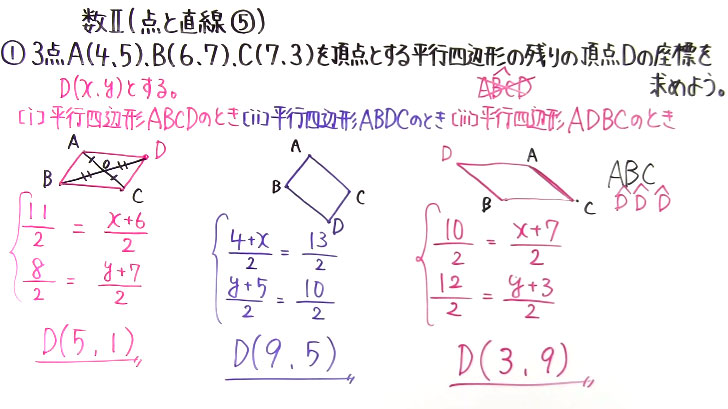 数Ⅱ(点と直線⑤)
① 3点A(4,5)、B(6,7)、C(7,3)を頂点とする平行四辺形の残りの頂点Dの座標を
求めよう。
D(x,y)とする。
ABCD
(i)平行四辺形ABCDのとき
A
D
B
C
11/2 = x+6/2
8/2 = y+7/2
D(5,1)
(ii)平行四辺形ABDCのとき
A
B
C
D
4+x/2 = 13/2
y+5/2 = 10/2
D(9,5)
(iii)平行四辺形ADBCのとき
D
A
B
C
ABC
D D D
10/2 = x+7/2
12/2 = y+3/2
D(3,9)